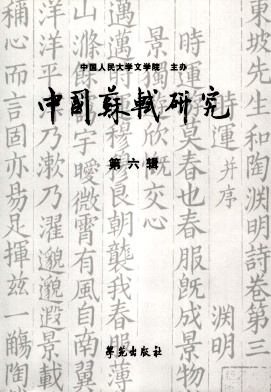 中国人民大学文学院 主办
中國蘇軾研究
第六辑
學苑出版社
東坡先生和陶淵明詩卷第三
時運 并序 淵明
時運游莫春也春服既成景物
景獨遊欣交心
邁邁時運穆穆良朝襲我春服薄
山滌餘靄宇曖微霄有風自南翼
洋洋平津乃漱乃濯邈邈遐景載
稱心而言固亦易足揮茲一觴陶